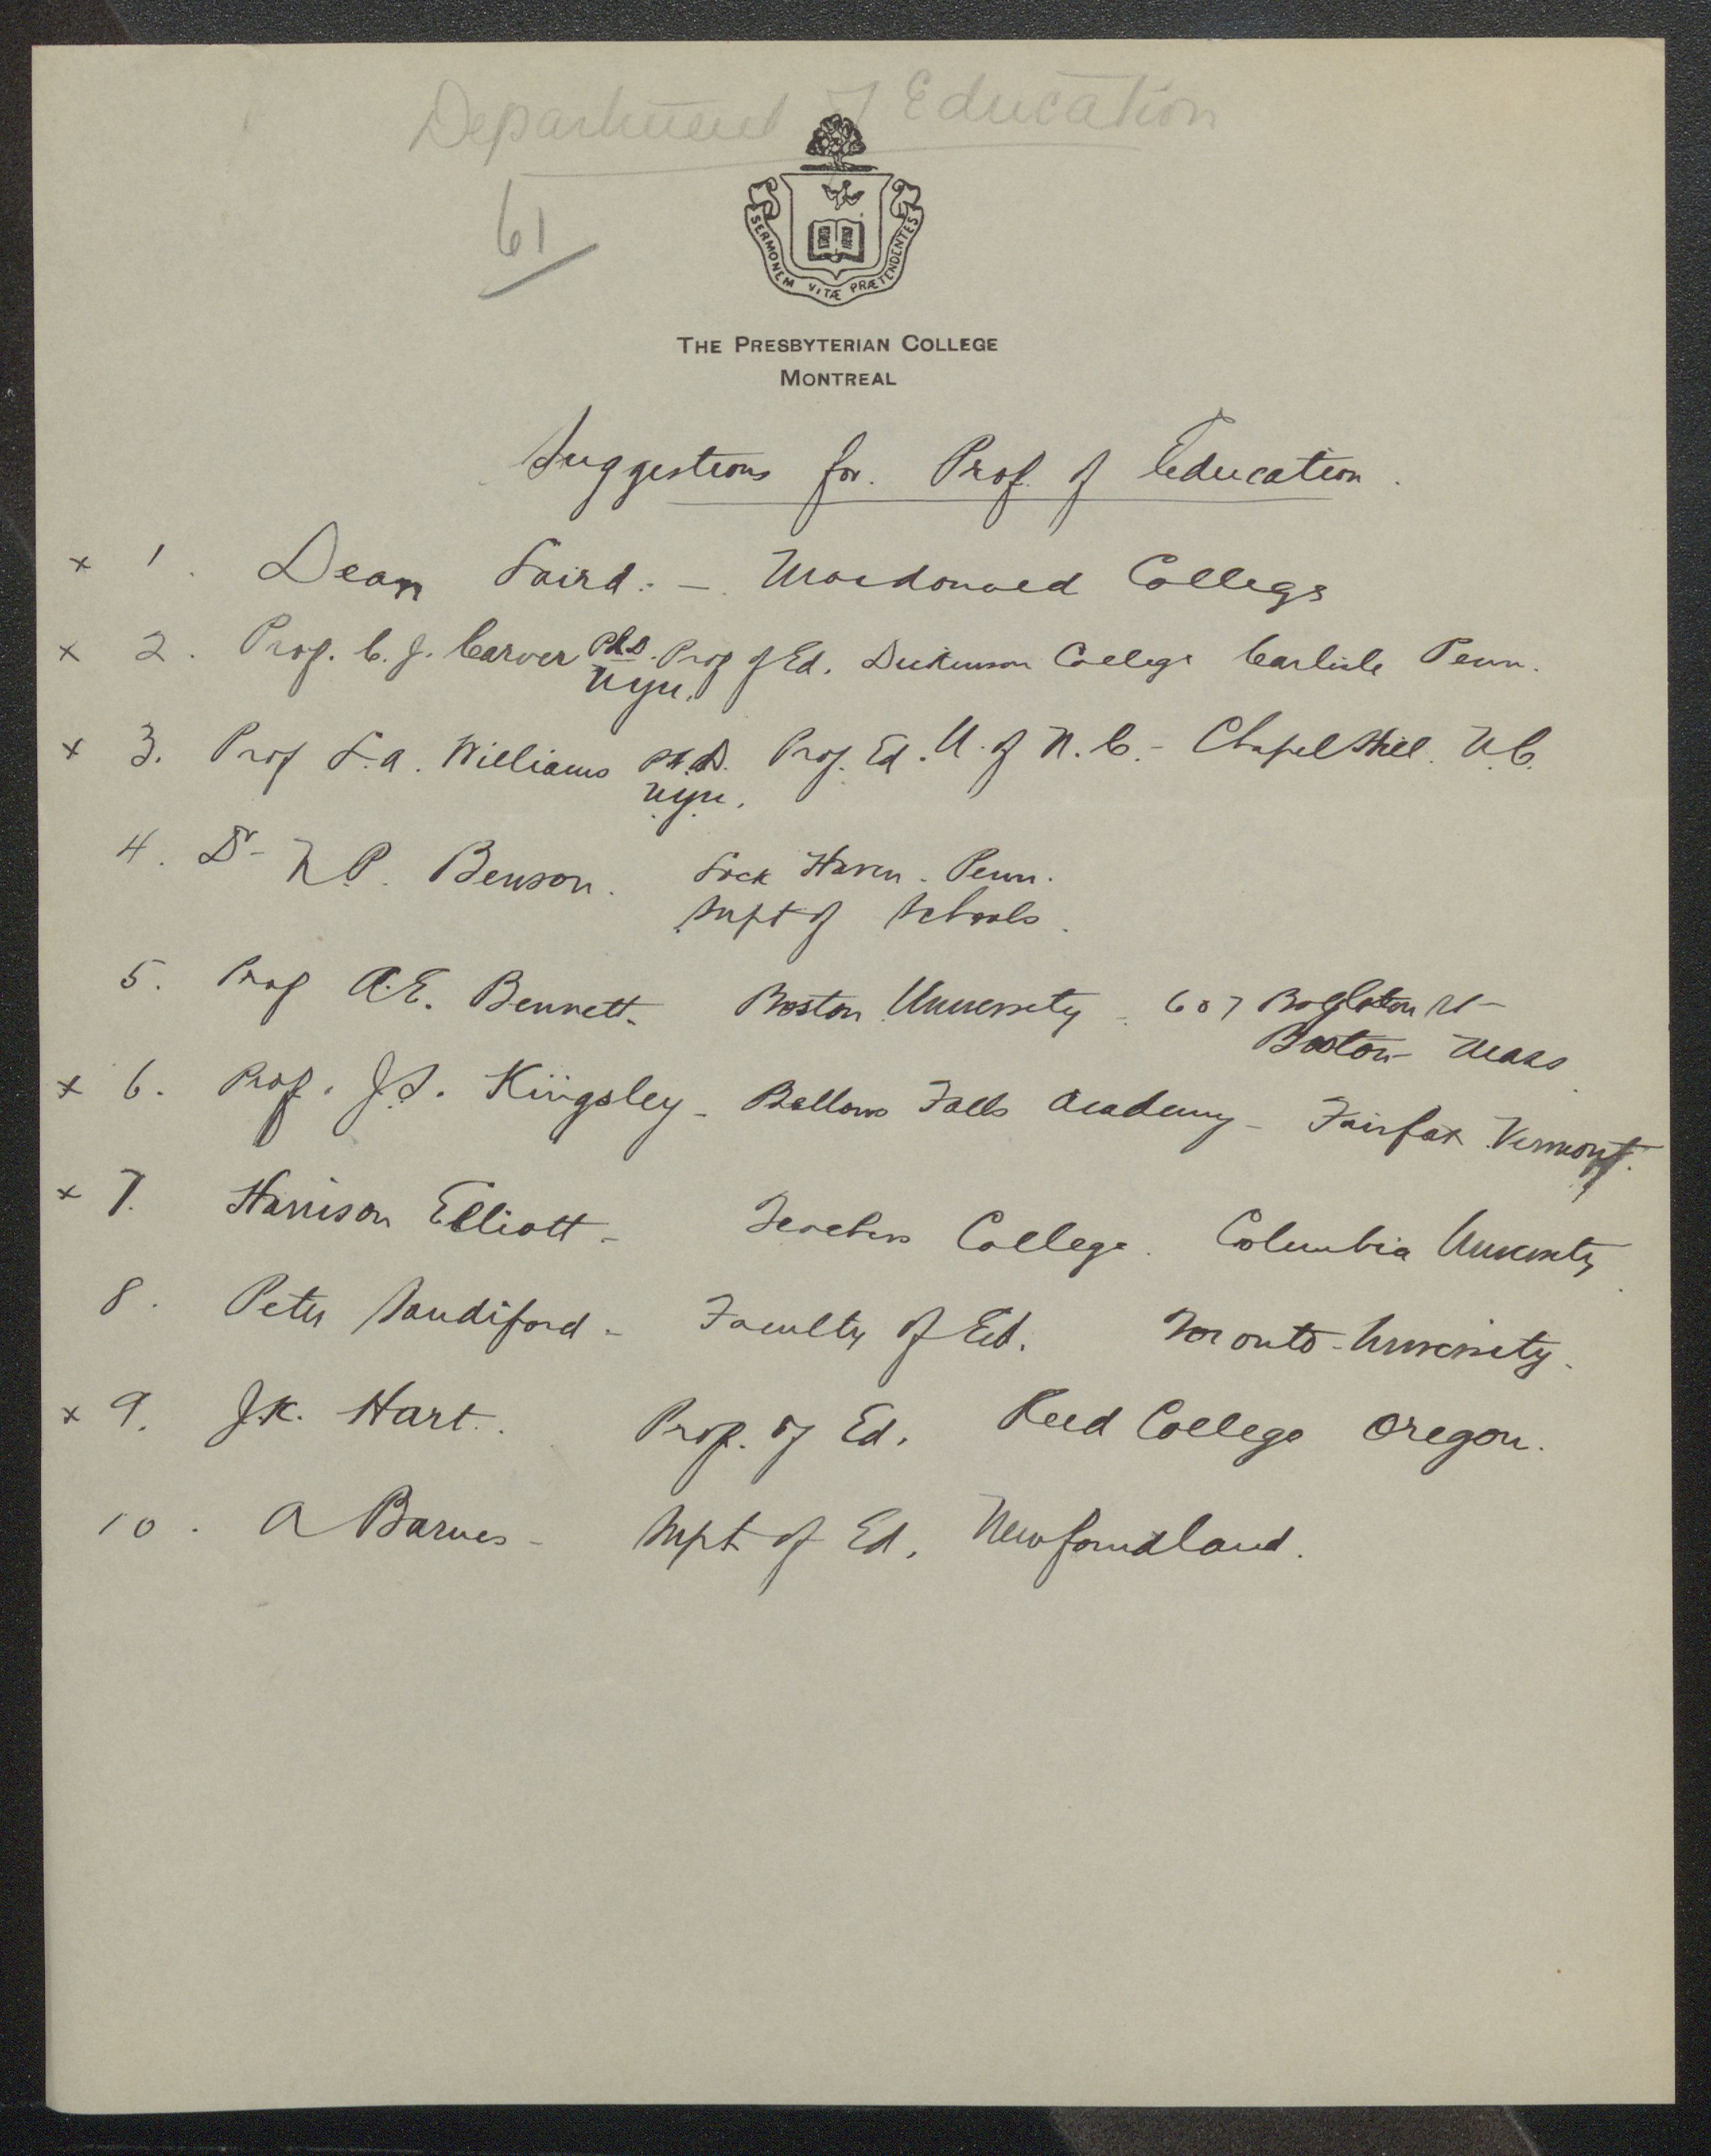 Department of Education
61
SERMONEM VITÆ PRÆTENDENTES
THE PRESBYTERIAN COLLEGE
MONTREAL
Suggestions for Prof. of Education.
x 1. Dean Laird. - Macdonald College
x 2. Prof. C. J. Carver PhD. Prof of Ed. Dickinson College Carlisle Penn.
NYU.
x 3. Prof L.A. Williams Ph.D. Prof. Ed. U. of N.C. - Chapel Hill. N.C.
NYU.
4. Dr N.P. Benson. Lock Haven. Penn.
Supt of Schools.
5. Prof A.E. Bennett - Boston University - 607 Boylston St
Boston Mass
x 6. Prof. J.S. Kingsley - Bellows Falls Academy - Fairfax Vermont.
x 7. Harrison Elliott - Teachers College. Columbia University
8. Peter Sandiford - Faculty of Ed. Toronto University.
x 9. J.K. Hart. Prof. of Ed. Reed College Oregon.
10. A Barnes - Supt of Ed. Newfoundland.